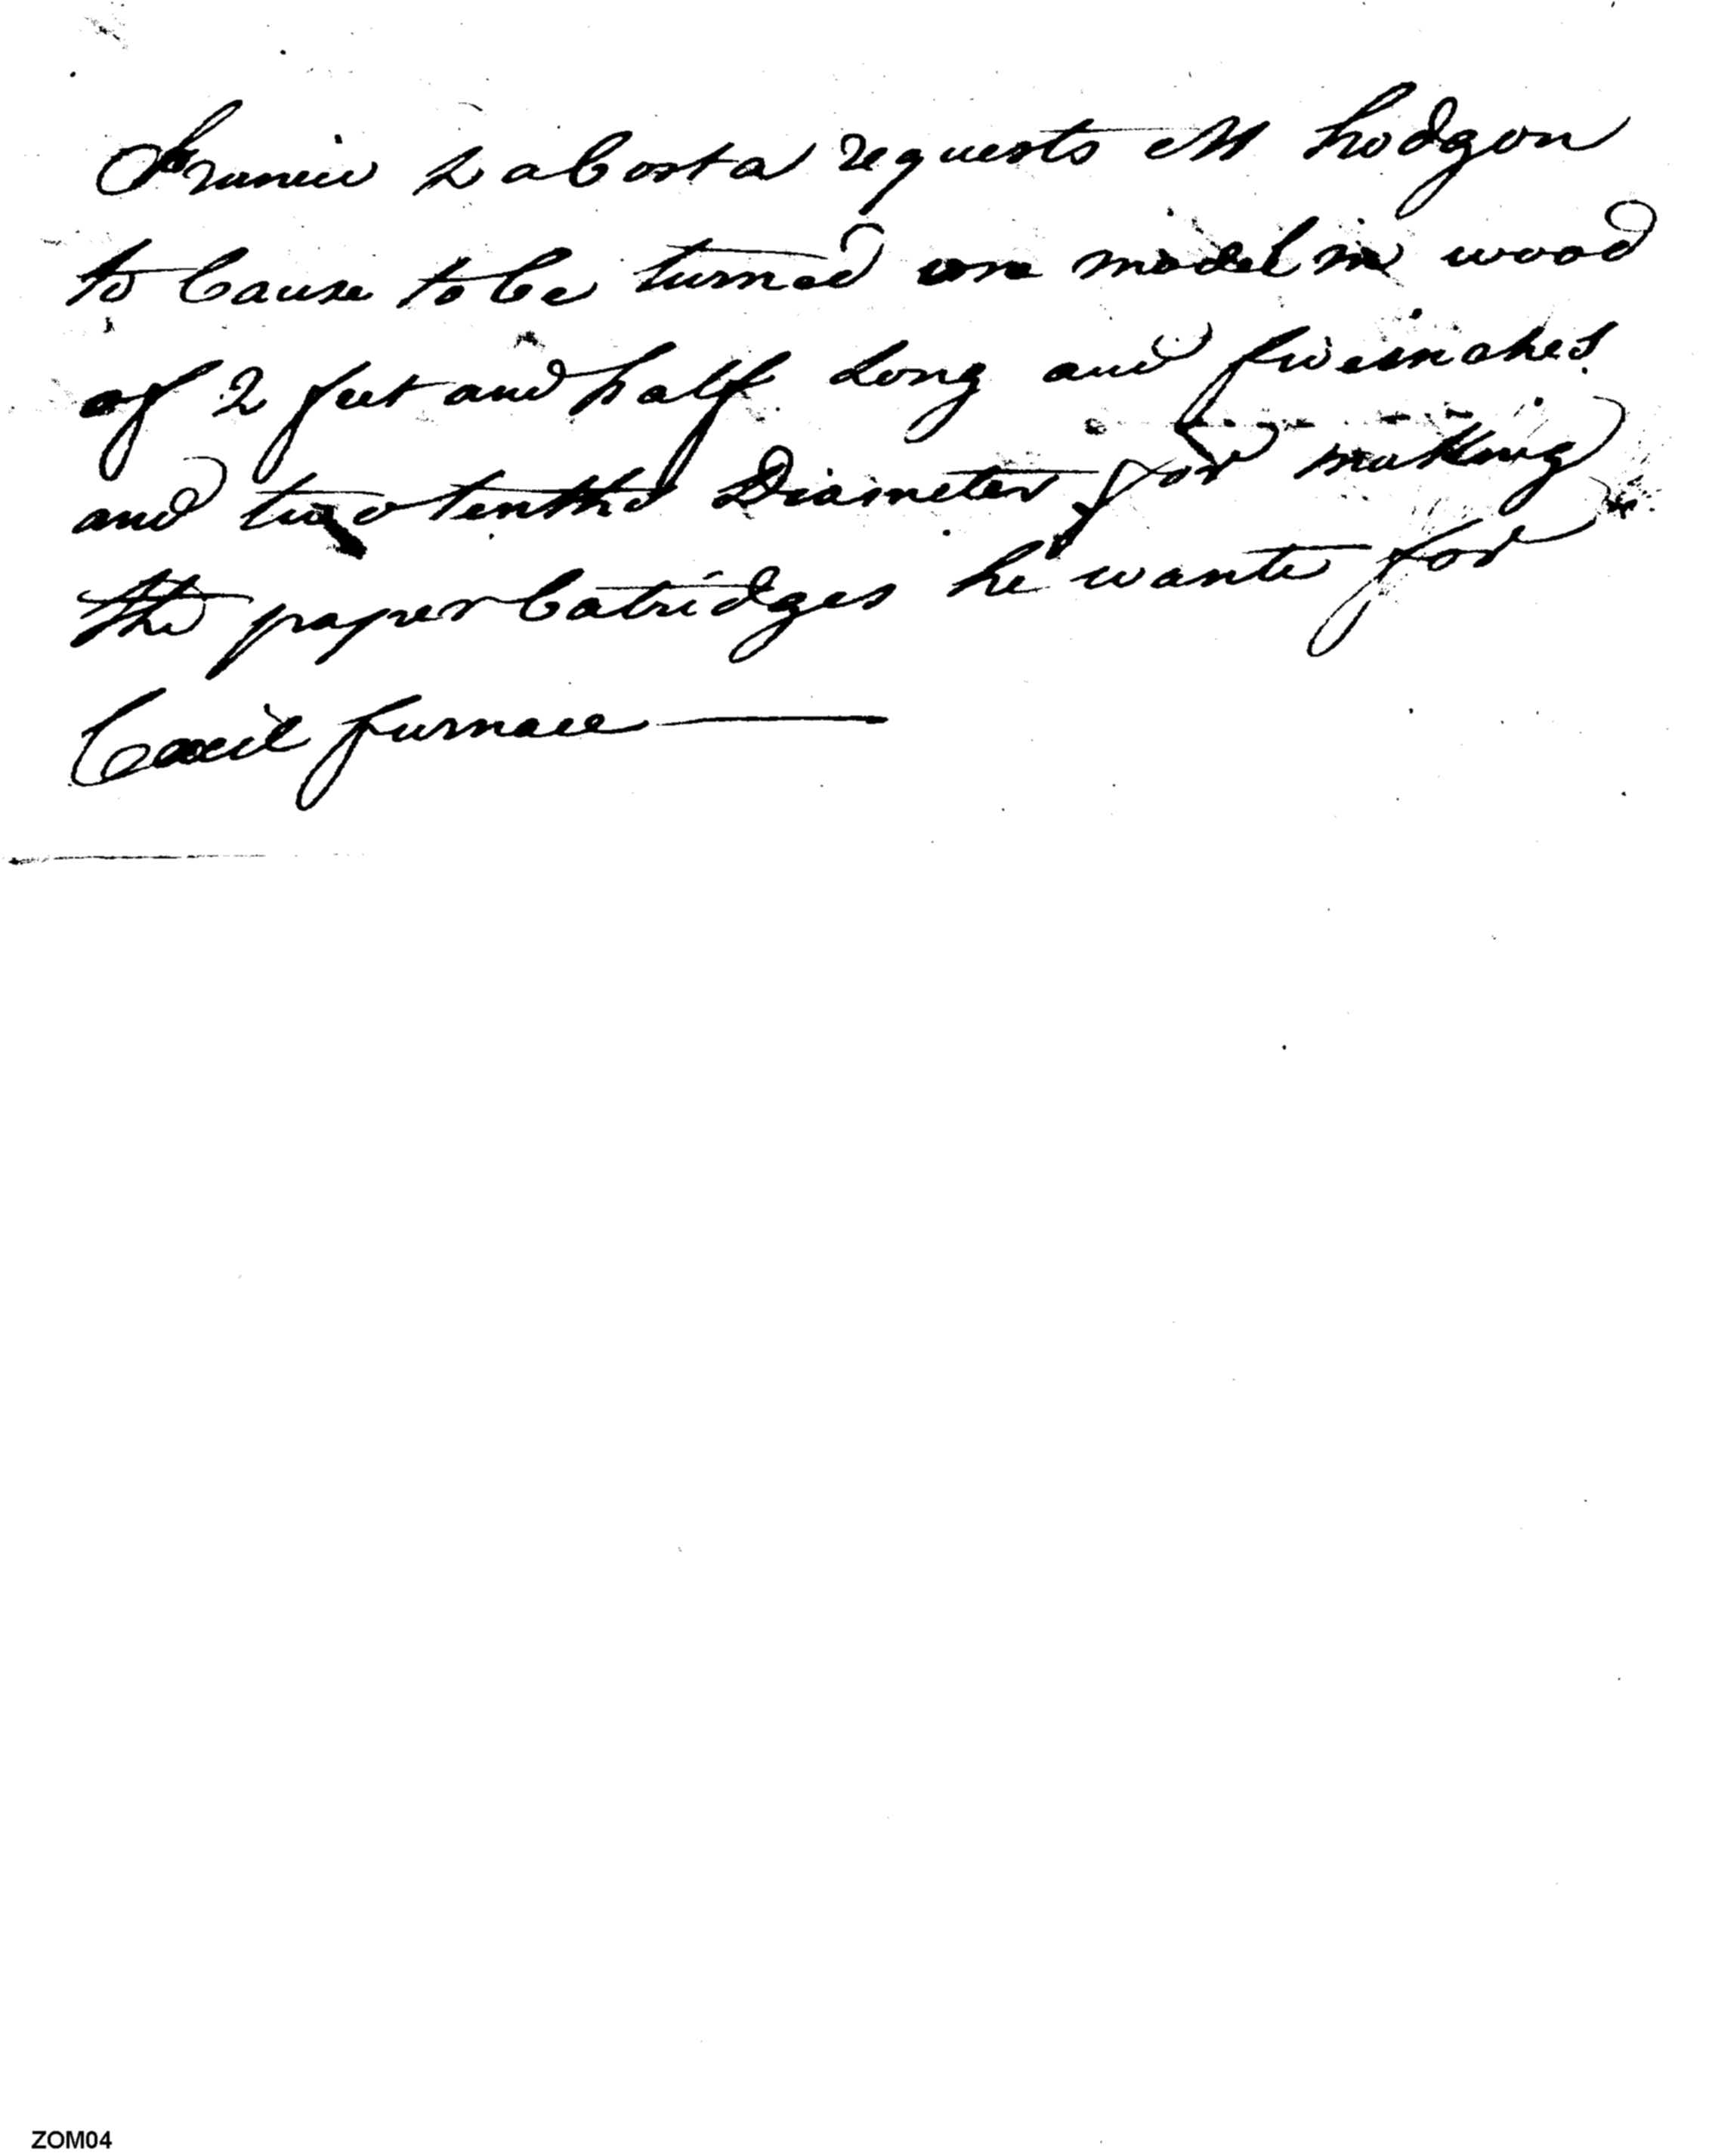 Dacosta requests M hodgson
to Cause to be turned one model in wood
of 2 feet and half Long and five inches
and two tenths Diameter for making
the paper Catridges he wants for
Cecil furnace
ZOM04